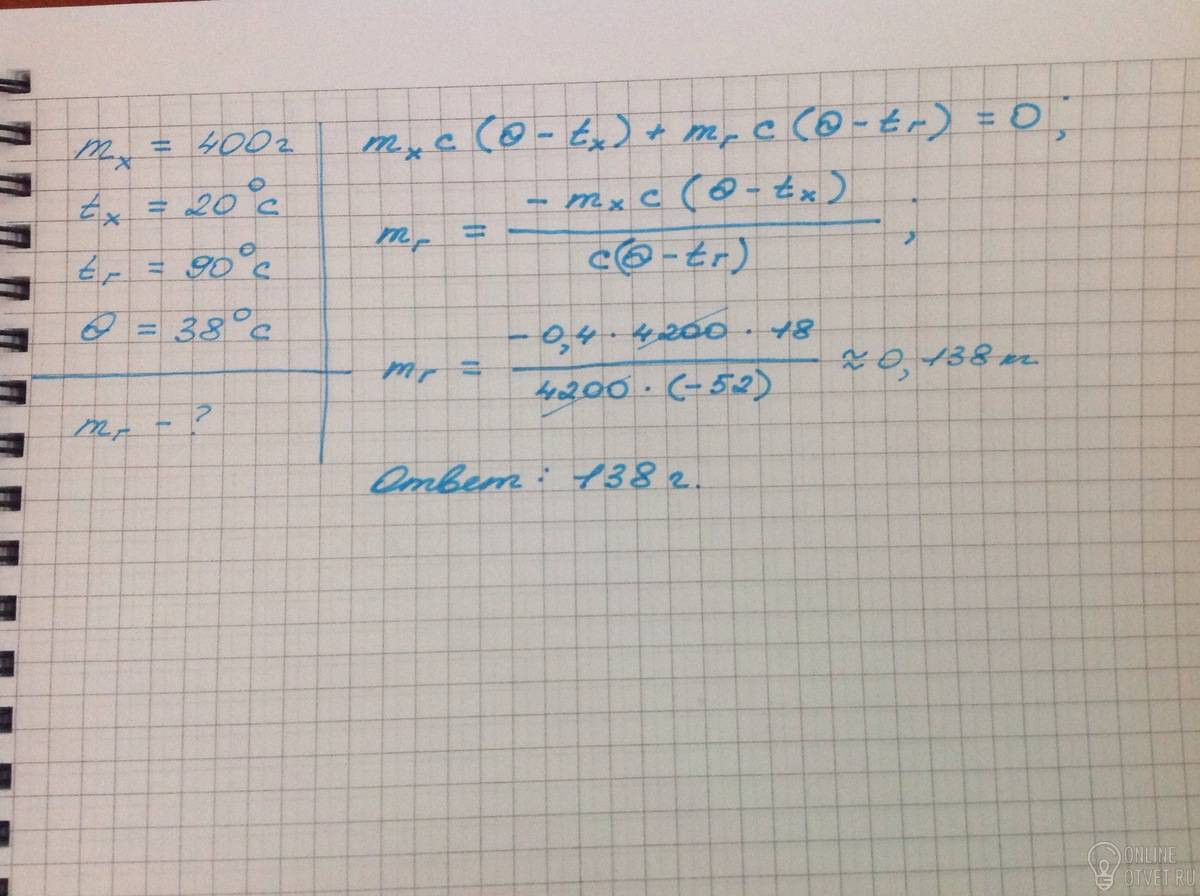 mₓ = 400г
tₓ = 20°c
tᵣ = 90°c
θ = 38°c
mᵣ - ?
mₓ c (θ - tₓ) + mᵣ c (θ - tᵣ) = 0;
mᵣ = - mₓ c (θ - tₓ) / c(θ - tᵣ) ;
mᵣ = - 0,4 · 4200 · 18 / 4200 · (-52) ≈ 0,138 кг
Ответ: 138 г.
ONLINE
OTVET.RU